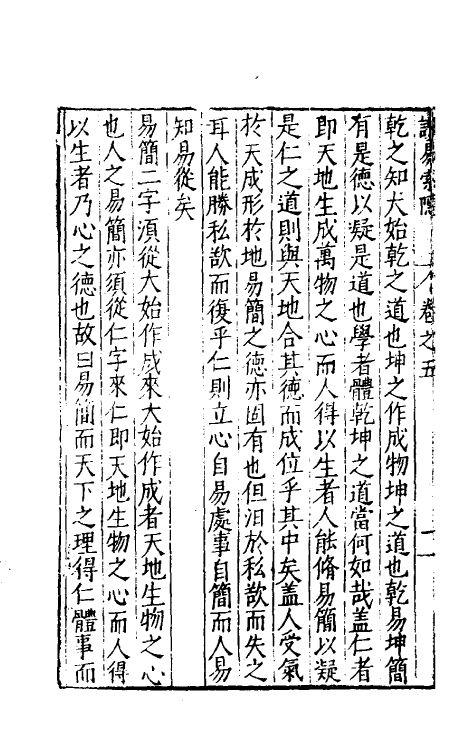 讀易索隱 卷之五 二
乾之知大始乾之道也坤之作成物坤之道也乾易坤簡
有是德以凝是道也學者體乾坤之道當何如哉盖仁者
即天地生成萬物之心而人得以生者人能脩易簡以凝
是仁之道則與天地合其德而成位乎其中矣盖人受氣
於天成形於地易簡之德亦固有也但汨於私欲而失之
耳人能勝私欲而復乎仁則立心自易處事自簡而人易
知易從矣
易簡二字須從大始作成來大始作成者天地生物之心
也人之易簡亦須從仁字來仁即天地生物之心而人得
以生者乃心之德也故曰易簡而天下之理得仁體事而